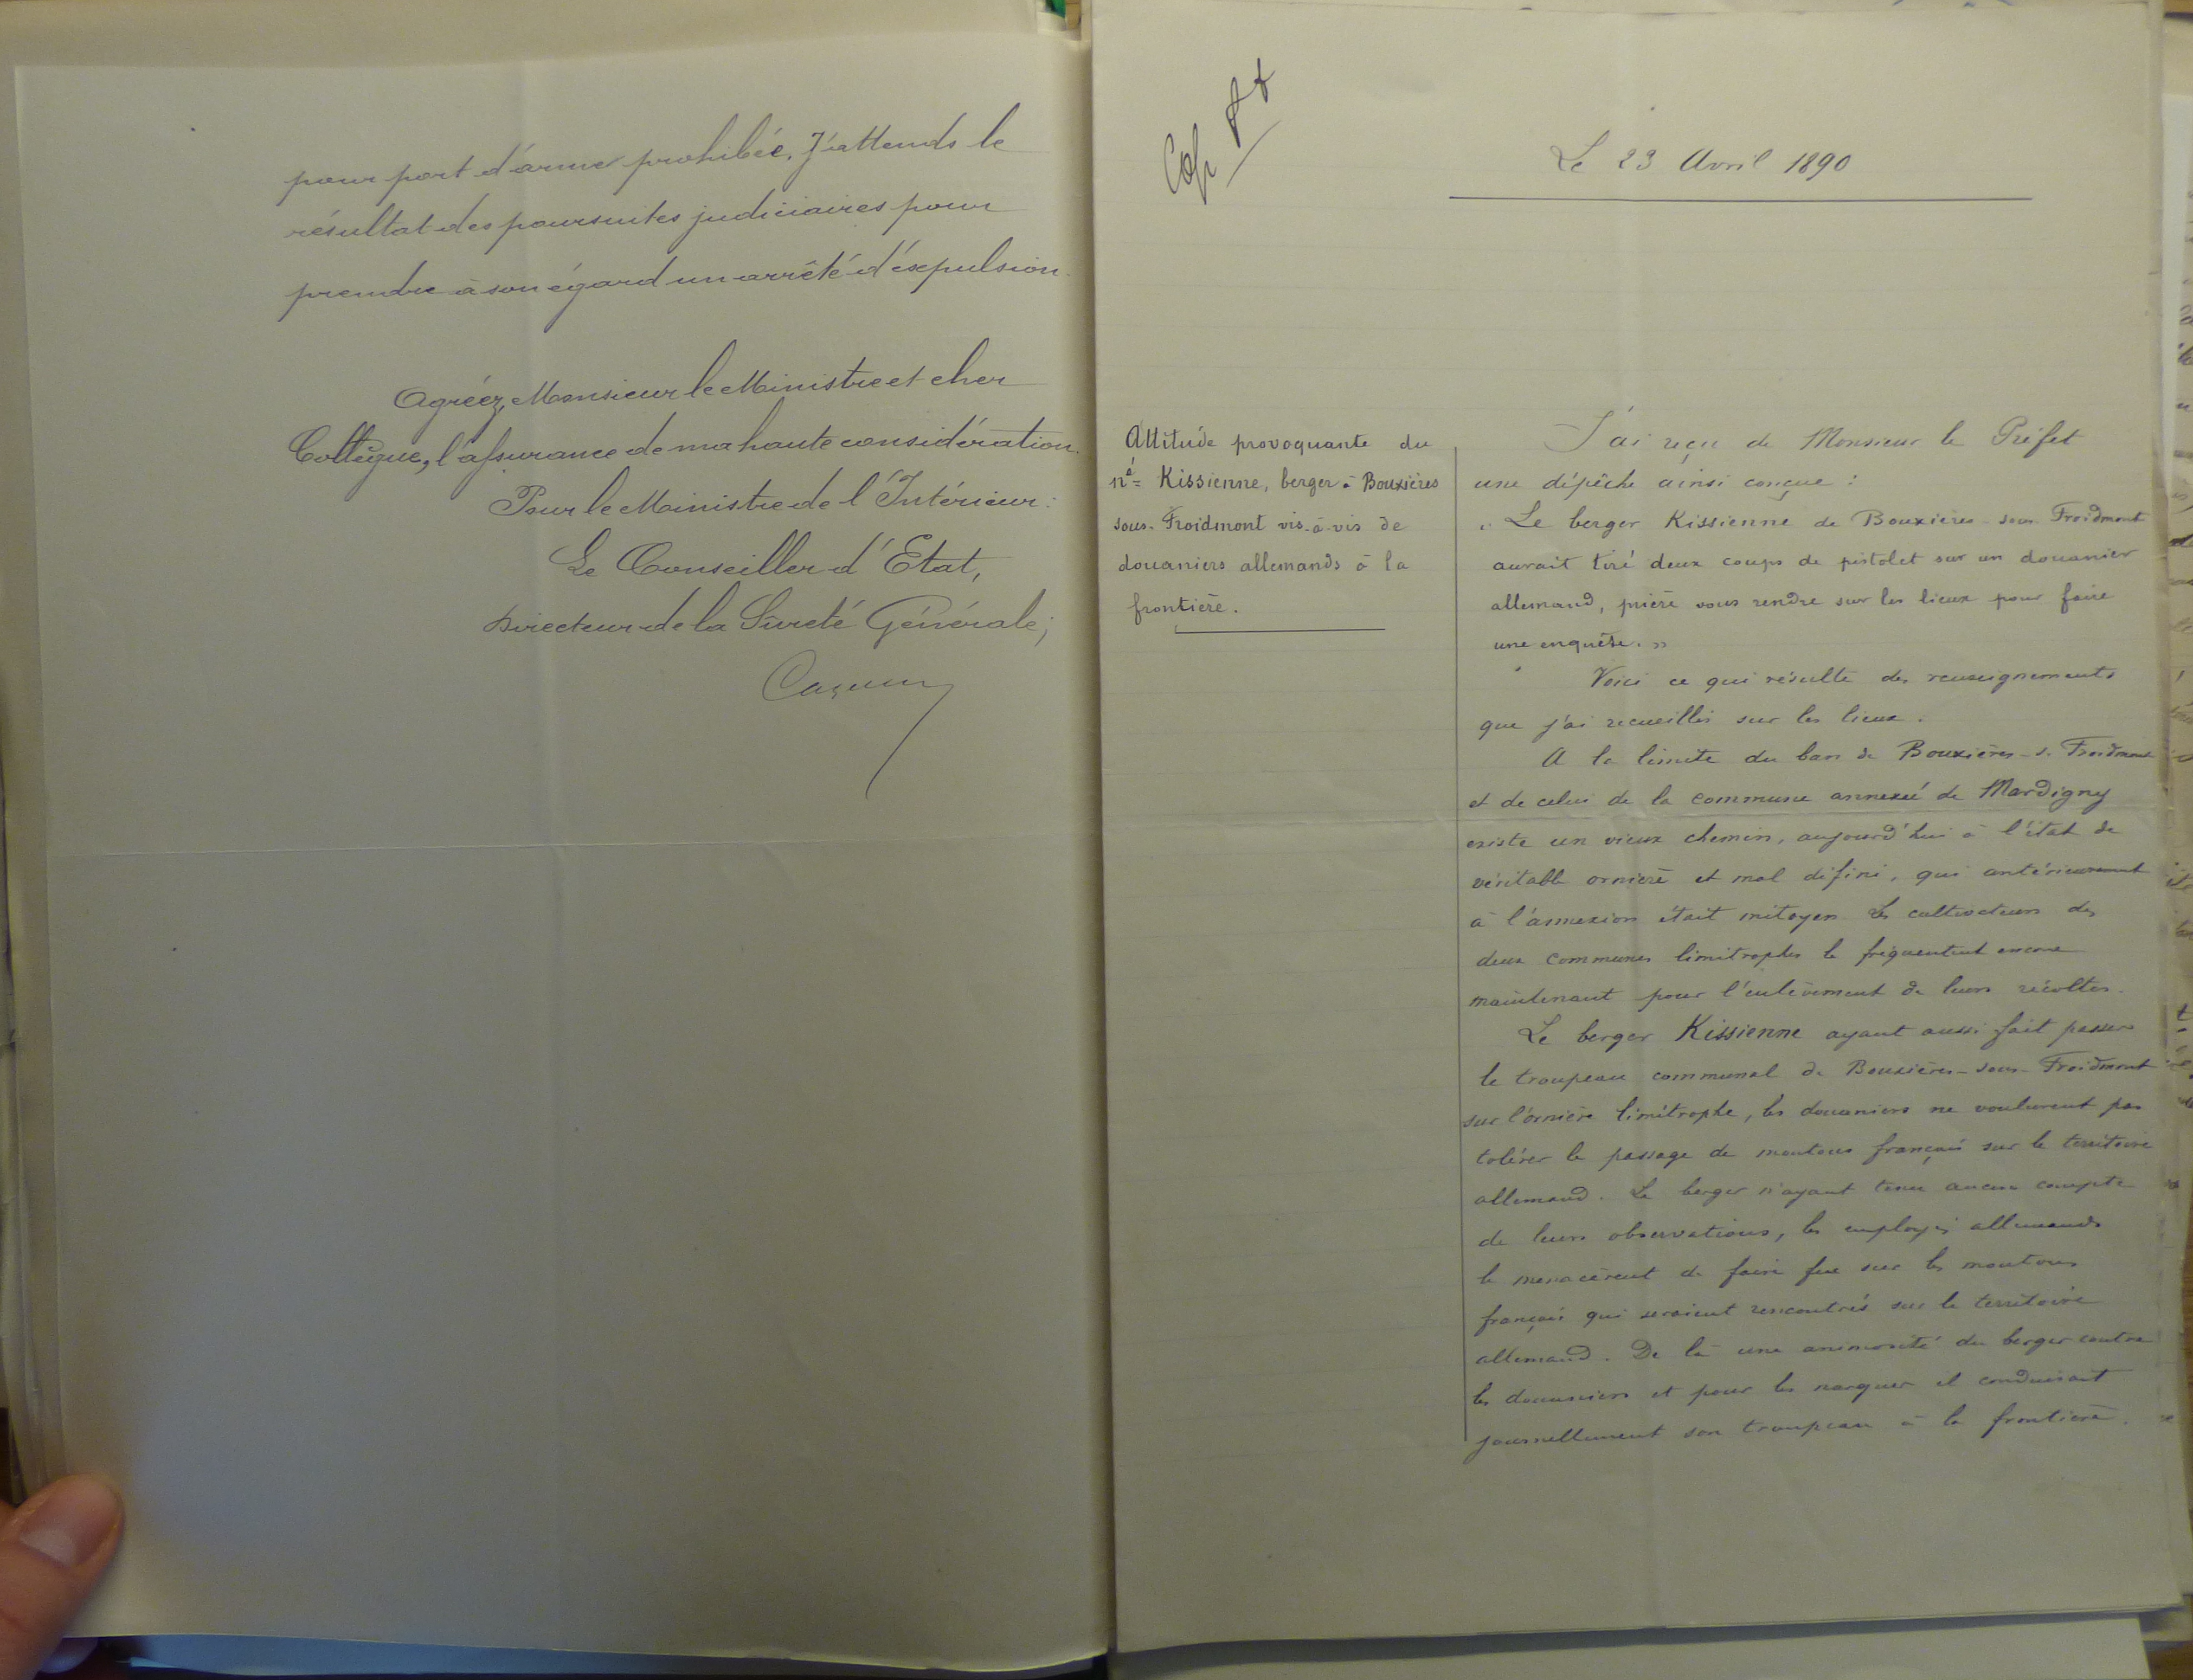 pour port d'arme prohibée. J'attends le
résultat des poursuites judiciaires pour
prendre à son égard un arrêté d'expulsion.
Agréez, Monsieur le Ministre et cher
Collègue, l'assurance de ma haute considération.
Pour le Ministre de l'Intérieur:
Le Conseiller d'Etat,
Directeur de la Sûreté Générale;
Le 23 Avril 1890
Attitude provoquante du
né Kissienne, berger à Bouxières
sous-Froidmont vis-à-vis de
douaniers allemands à la
frontière.
J'ai reçu de Monsieur le Préfet
une dépêche ainsi conçue :
« Le berger Kissienne de Bouxières-sous-Froidmont
aurait tiré deux coups de pistolet sur un douanier
allemand, prière vous rendre sur les lieux pour faire
une enquête. »
Voici ce qui résulte des renseignements
que j'ai recueillis sur les lieux.
A la limite du ban de Bouxières-s.-Froidmont
et de celui de la commune annexée de Mardigny
existe un vieux chemin, aujourd'hui à l'état de
véritable ornière et mal défini, qui antérieurement
à l'annexion était mitoyen. Les cultivateurs des
deux communes limitrophes le fréquentent encore
maintenant pour l'enlèvement de leurs récoltes.
Le berger Kissienne ayant aussi fait passer
le troupeau communal de Bouxières-sous-Froidmont
sur l'ornière limitrophe, les douaniers ne voulurent pas
tolérer le passage de moutons français sur le territoire
allemand. Le berger n'ayant tenu aucun compte
de leurs observations, les employés allemands
le menacèrent de faire feu sur les moutons
français qui seraient rencontrés sur le territoire
allemand. De là une animosité du berger contre
les douaniers et pour les narguer il conduisait
journellement son troupeau à la frontière.